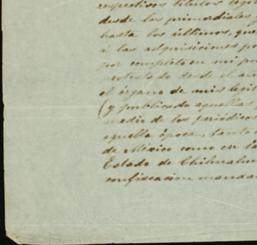 respectivos titulos
desde los primordiales
hasta los últimos, que
á las adquisiciones
por completo en mi
protestado desde el
el órgano de mis
(y publicada aquellas
medio de los periódicos
aquella época, tanto
de México como en la
Estado de Chihuahua
confiscacion